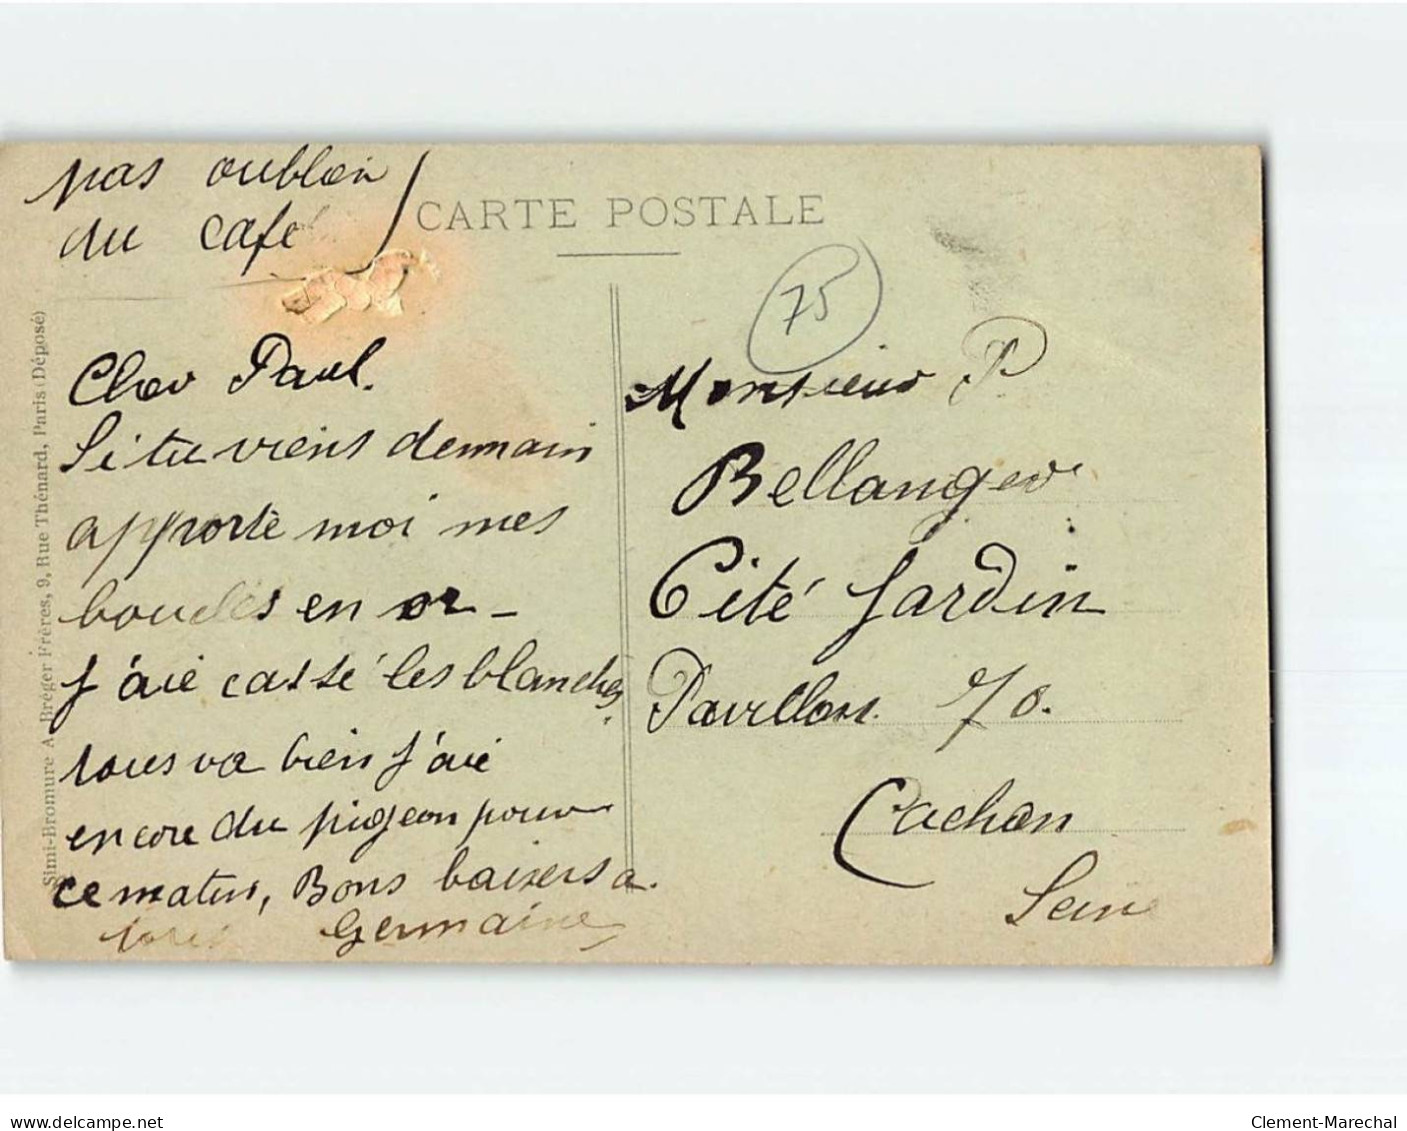 pas oublier
du café
CARTE POSTALE
75
Simi-Bromure A. Bréger Frères, 9, Rue Thénard, Paris (Déposé)
Cher Paul.
Si tu viens demain
apporte moi mes
boucles en or -
J'aie cassé les blanches.
tous va bien J'aie
encore du pigeon pour
ce matin, Bons baisers a.
tous Germaine
Monsieur P
Bellanger
Cité Jardin
Pavillon 70.
Cachan
Seine
delcampe.net
Clement-Marechal